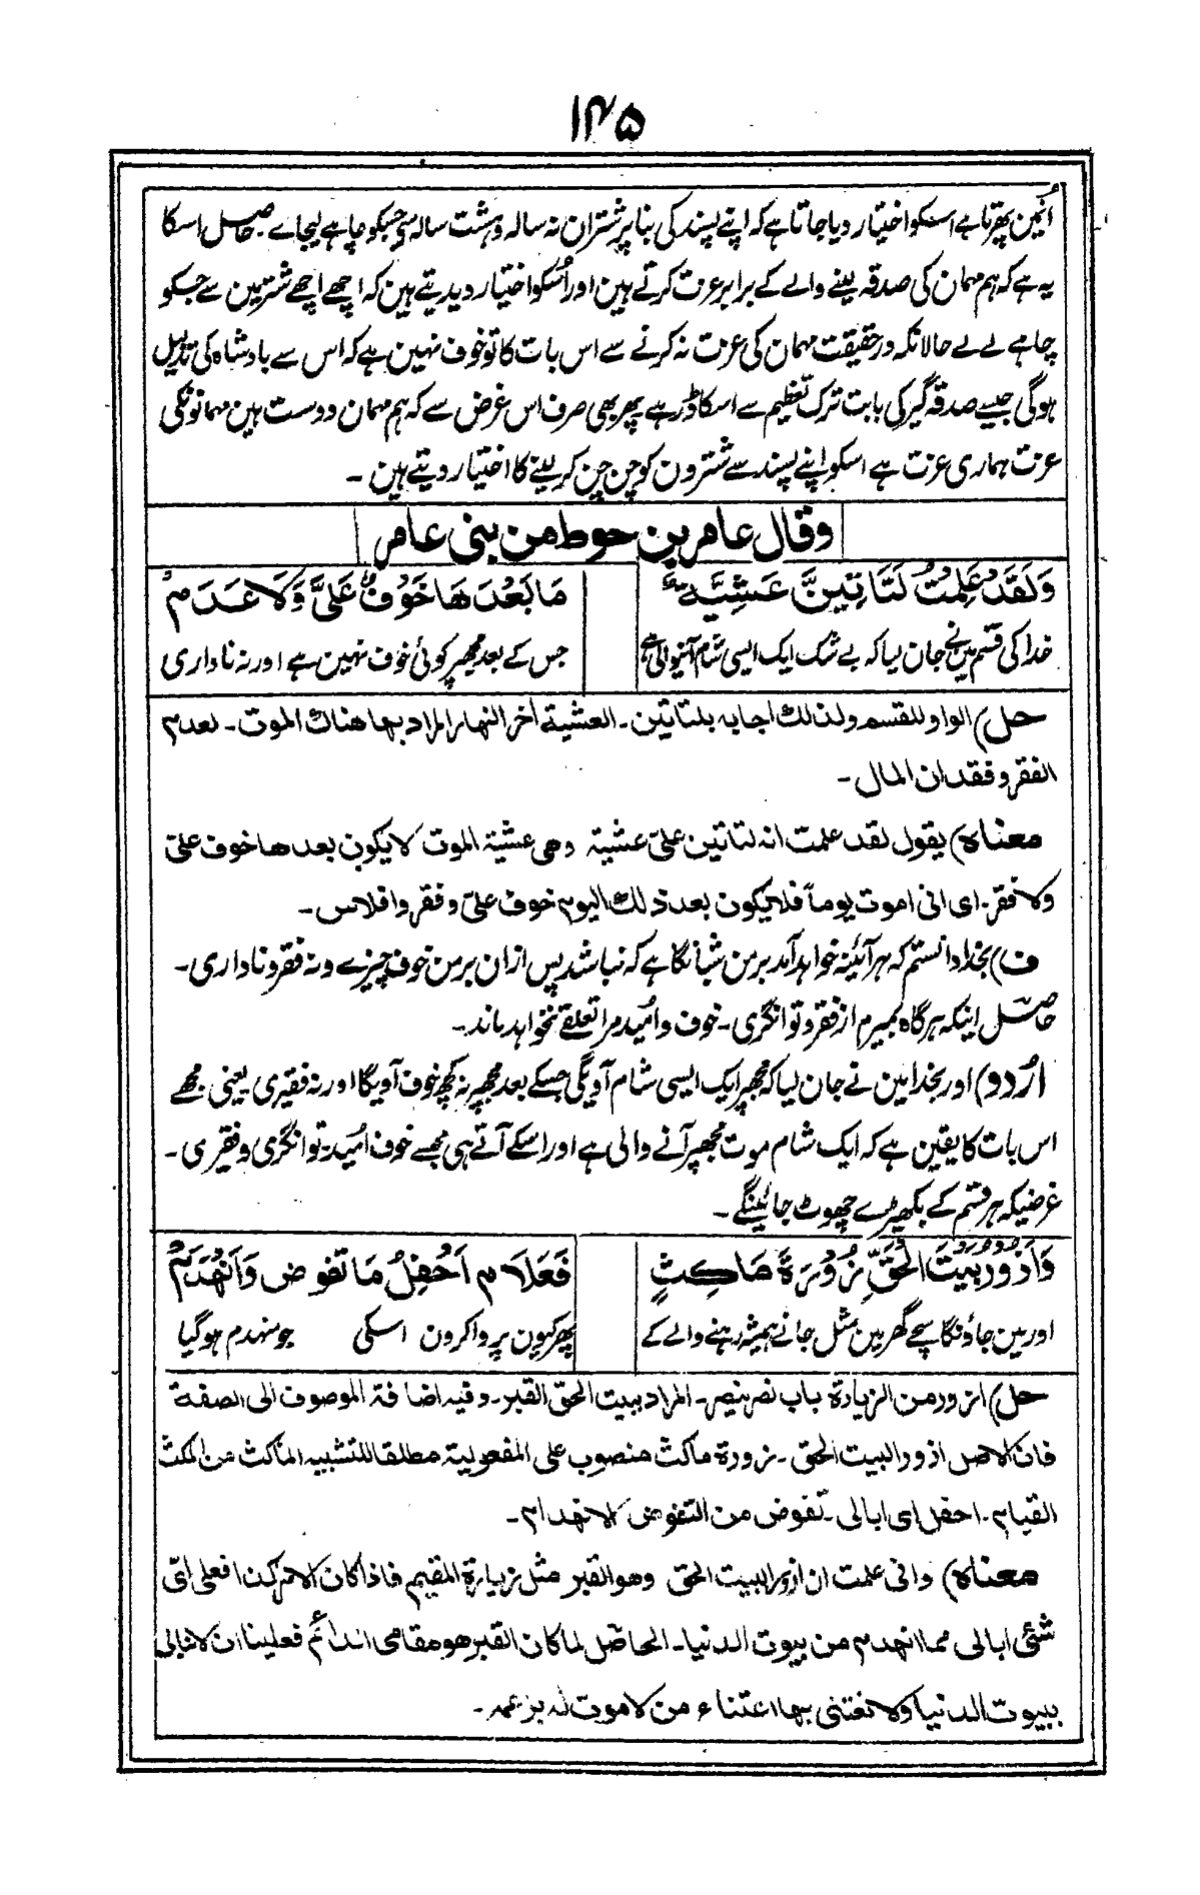 ۱۴۵
اُنمین پھرتا ہے اسکو اختیار دیا جاتا ہے کہ اپنے پسند کی بنا پر شتران نہ سالہ و ہشت سالہ سے جبکو چاہے لیجاے۔ حاصل اسکا
یہ ہے کہ ہم مہمان کی صدقہ لینے والے کے برابر عزت کرتے ہین اور اُسکو اختیار دیدیتے ہین کہ اچھے اچھے شترمین سے جسکو
چاہے لے لے حالانکہ درحقیقت مہمان کی عزت نہ کرنے سے اس بات کا تو خوف نہین ہے کہ اس سے بادشاہ کی تذلیل
ہوگی جیسے صدقہ گیر کی بابت ترک تعظیم سے اسکا ڈر ہے پھر بھی صرف اس غرض سے کہ ہم مہمان دوست ہین مہمانونکی
عزت ہماری عزت ہے اسکو اپنے پسند سے شترون کو چن چن کر لینے کا اختیار دیتے ہین ۔
وقال عامر بن حوط من بنی عامر
وَلَقَدْ عَلِمْتُ لَتَاتِیَنَّ عَشِیَّۃٌ مَا بَعْدَھَا خَوْفٌ عَلَیَّ وَلَا عَدَمُ
خدا کی قسم مین نے جان لیا کہ بے شک ایک ایسی شام آنیوالی ہے جس کے بعد مجھپر کوئی خوف نہین ہے اور نہ ناداری
حل) الواو للقسم ولذلک اجابہ بلتاتین۔ العشیۃ اٰخر النھار المراد بھا ھناک الموت ۔ لعدم
الفقر وفقدان المال ۔
معناہ) یقول لقد علمت انہ لتاتین علیّ عشیۃ وھی عشیۃ الموت لا یکون بعدھا خوف علیّ
ولا فقر۔ ای انی اموت یوماً فلا یکون بعد ذلک الیوم خوف علیّ و فقر وافلاس ۔
ف) بخدا دانستم کہ ہر آئینہ خواہد آمد بر من شبانگاہے کہ نباشد پس ازان بر من خوف چیزے ونہ فقر و ناداری ۔
حاصل اینکہ ہرگاہ بمیرم از فقر و توانگری ۔ خوف و اُمید مرا تعلقے نخواہد ماند ۔
اُردو) اور بخدا مین نے جان لیا کہ مجھپر ایک ایسی شام آویگی جسکے بعد مجھپر نہ کچھ خوف آویگا اور نہ فقیری یعنی مجھے
اس بات کا یقین ہے کہ ایک شام موت مجھپر آنے والی ہے اور اسکے آتے ہی مجھسے خوف اُمید۔ توانگری و فقیری ۔
غرضیکہ ہر قسم کے بکھیڑے چھوٹ جائینگے ۔
وَاَزُوْرُ بَیْتَ الْحَقِّ زَوْرَۃَ مَاکِثٍ فَعَلَامَ اَحْفِلُ مَا تَقَوَّضَ وَانْھَدَمُ
اور مین جاؤنگا سچے گھر مین مثل جانے ہمیشہ رہنے والے کے پھر کیون پروا کرون اسکی جو منہدم ہوگیا
حل) ازور من الزیارۃ باب نصر ینصر۔ المراد ببیت الحق القبر۔ وفیہ اضافۃ الموصوف الی الصفۃ
فان الاصل ازور البیت الحق ۔ زورۃ ماکث منصوب علی المفعولیۃ مطلقا للتشبیہ الماکث من المکث
القیام ۔ احفل ای ابالی ۔ تقوض من التقوض الانھدام ۔
معناہ) وانی علمت ان ازور البیت الحق وھو القبر مثل زیارۃ المقیم فاذا کان الامر کذا فعلی ای
شئ ابالی مما انھدم من بیوت الدنیا۔ الحاصل لما کان القبر ھو مقامی الدائم فعلینا ان لا نبالی
ببیوت الدنیا ولا نعتنی بھا اعتناء من لا موت لہ بزعمہ ۔